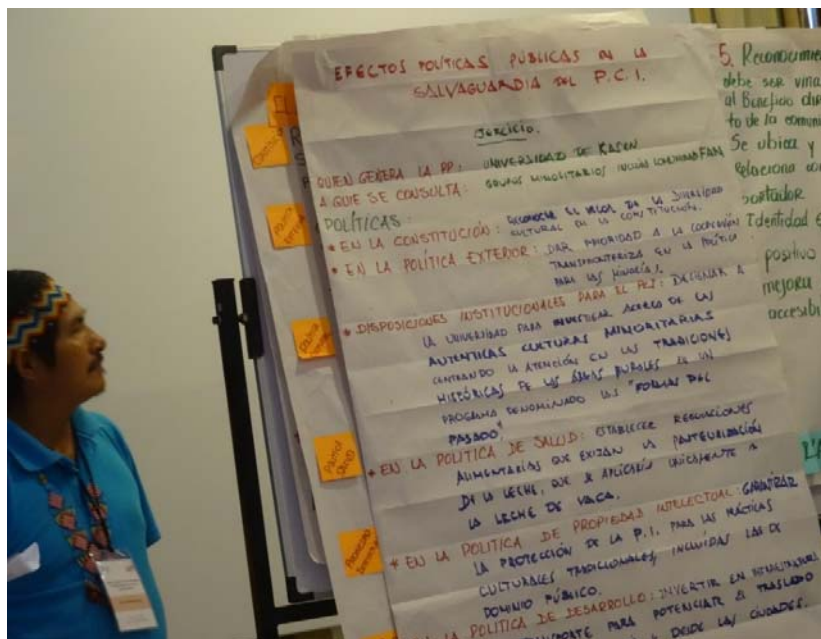 EFECTOS POLÍTICAS PÚBLICAS EN LA
SALVAGUARDIA DEL P.C.I.
EJERCICIO.
QUIEN GENERA LA PP: UNIVERSIDAD DE KASEN
A QUIE SE CONSULTA: GRUPOS MINOLITARIOS
POLÍTICAS:
* EN LA CONSTITUCIÓN: RECONOCER EL VALOR DE LA DIVERSIDAD
CULTURAL EN LA CONSTITUCIÓN.
* EN LA POLÍTICA EXTERIOR: DAR PRIORIDAD A LA COOPERACIÓN
TRANSFRONTERIZA EN LA POLÍTICA
PARA LAS MINORÍAS.
* DISPOSICIONES INSTITUCIONALES PARA EL PCI: DESIGNAR A
LA UNIVERSIDAD PARA INVESTIGAR ACERCA DE LAS
AUTENTICAS CULTURAS MINORITARIAS
CENTRANDO LA ATENCIÓN EN LAS TRADICIONES
HISTÓRICAS DE LAS ÁREAS RURALES EN UN
PROGRAMA DENOMINADO LAS "FORMAS DEL
PASADO".
* EN LA POLITICA DE SALUD: ESTABLECER REGULACIONES
ALIMENTARIAS QUE EXIJAN LA PASTEURIZACIÓN
DE LA LECHE, QUE SE APLICARÍA UNICAMENTE A
LA LECHE DE VACA.
* EN LA POLITICA DE PROPIEDAD INTELECTUAL: GARANTIZAR
LA PROTECCIÓN DE LA P.I. PARA LAS PRÁCTICAS
CULTURALES TRADICIONALES, INCLUIDAS LAS DE
DOMINIO PÚBLICO.
LA POLÍTICA DE DESARROLLO: INVERTIR EN
PARA POTENCIAR EL TRASLADO
DESDE LAS CIUDADES.
5. Reconocimie
debe ser vina
al Beneficio dir
to de la comuni
Se ubica y
Relaciona co
portador
Identidad e
positivo
mejora
accesibi
POLITICA
EXTERIOR
POLITICA
SALUD
PROPIEDAD